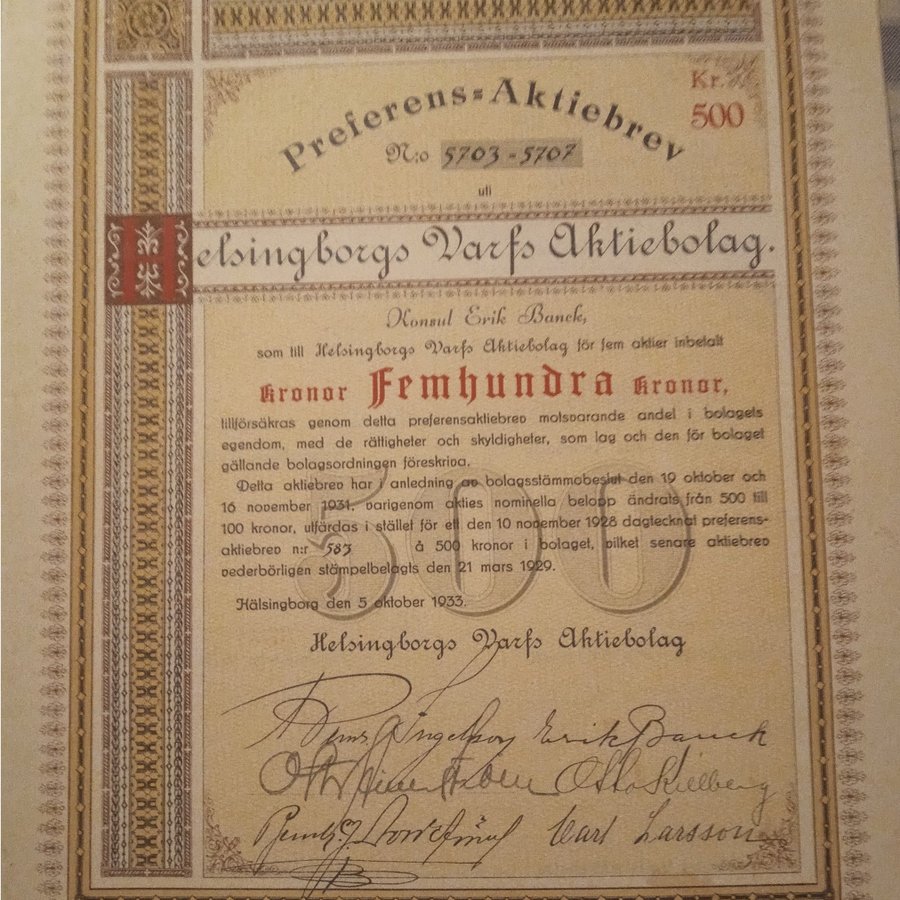 Preferens-Aktiebrev
Kr.
500
N:o 5703-5707
uti
Helsingborgs Varfs Aktiebolag.
Konsul Erik Banck,
som till Helsingborgs Varfs Aktiebolag för fem aktier inbetalt
Kronor Femhundra Kronor,
tillförsäkras genom detta preferensaktiebrev motsvarande andel i bolagets
egendom, med de rättigheter och skyldigheter, som lag och den för bolaget
gällande bolagsordningen föreskriva.
Detta aktiebrev har i anledning av bolagsstämmobeslut den 19 oktober och
16 november 1931, varigenom akties nominella belopp ändrats från 500 till
100 kronor, utfärdas i stället för ett den 10 november 1928 dagtecknat preferens-
aktiebrev n:r 583 å 500 kronor i bolaget, vilket senare aktiebrev
vederbörligen stämpelbelagts den 21 mars 1929.
500
Hälsingborg den 5 oktober 1933.
Helsingborgs Varfs Aktiebolag
Erik Banck
Otto Otto Killberg
Carl Larsson